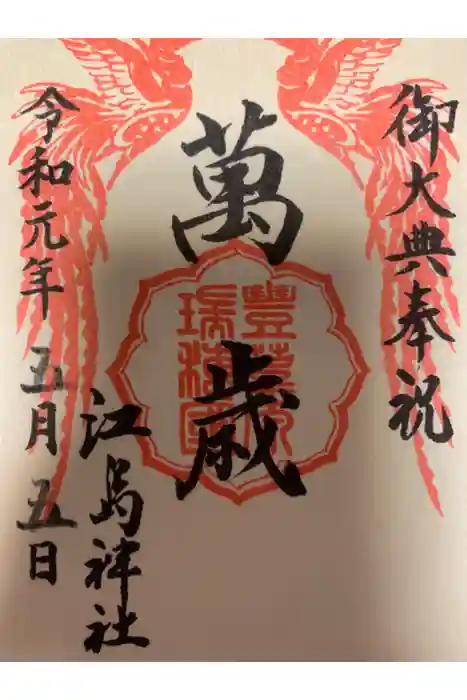 御大典奉祝
萬歳
豐葦原
瑞穂國
江島神社
令和元年五月五日